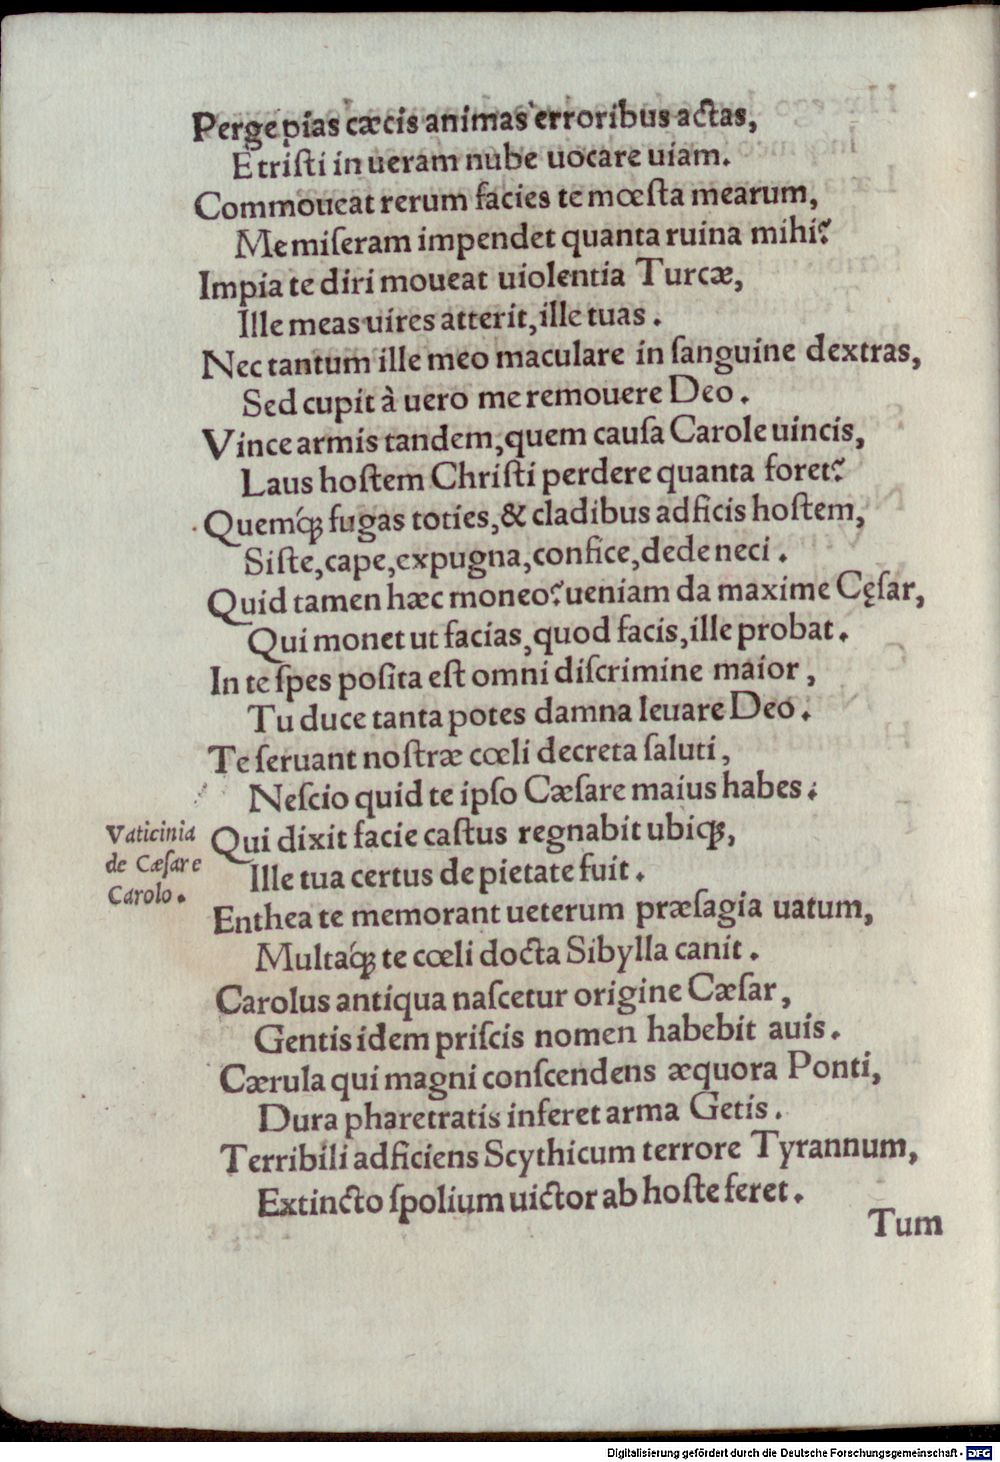 Perge pias cæcis animas erroribus actas,
E tristi in ueram nube uocare uiam.
Commoueat rerum facies te mœsta mearum,
Me miseram impendet quanta ruina mihi?
Impia te diri moueat uiolentia Turcæ,
Ille meas uires atterit, ille tuas.
Nec tantum ille meo maculare in sanguine dextras,
Sed cupit à uero me remouere Deo.
Vince armis tandem, quem causa Carole uincis,
Laus hostem Christi perdere quanta foret?
Quemq́; fugas toties, & cladibus adficis hostem,
Siste, cape, expugna, confice, dede neci.
Quid tamen hæc moneo? ueniam da maxime Cęsar,
Qui monet ut facias, quod facis, ille probat.
In te spes posita est omni discrimine maior,
Tu duce tanta potes damna leuare Deo.
Te seruant nostræ cœli decreta saluti,
Nescio quid te ipso Cæsare maius habes.
Vaticinia
de Cæsare
Carolo.
Qui dixit facie castus regnabit ubiq;,
Ille tua certus de pietate fuit.
Enthea te memorant ueterum præsagia uatum,
Multaq́; te cœli docta Sibylla canit.
Carolus antiqua nascetur origine Cæsar,
Gentis idem priscis nomen habebit auis.
Cærula qui magni conscendens æquora Ponti,
Dura pharetratis inferet arma Getis.
Terribili adficiens Scythicum terrore Tyrannum,
Extincto spolium uictor ab hoste feret.
Tum
Digitalisierung gefördert durch die Deutsche Forschungsgemeinschaft - DFG